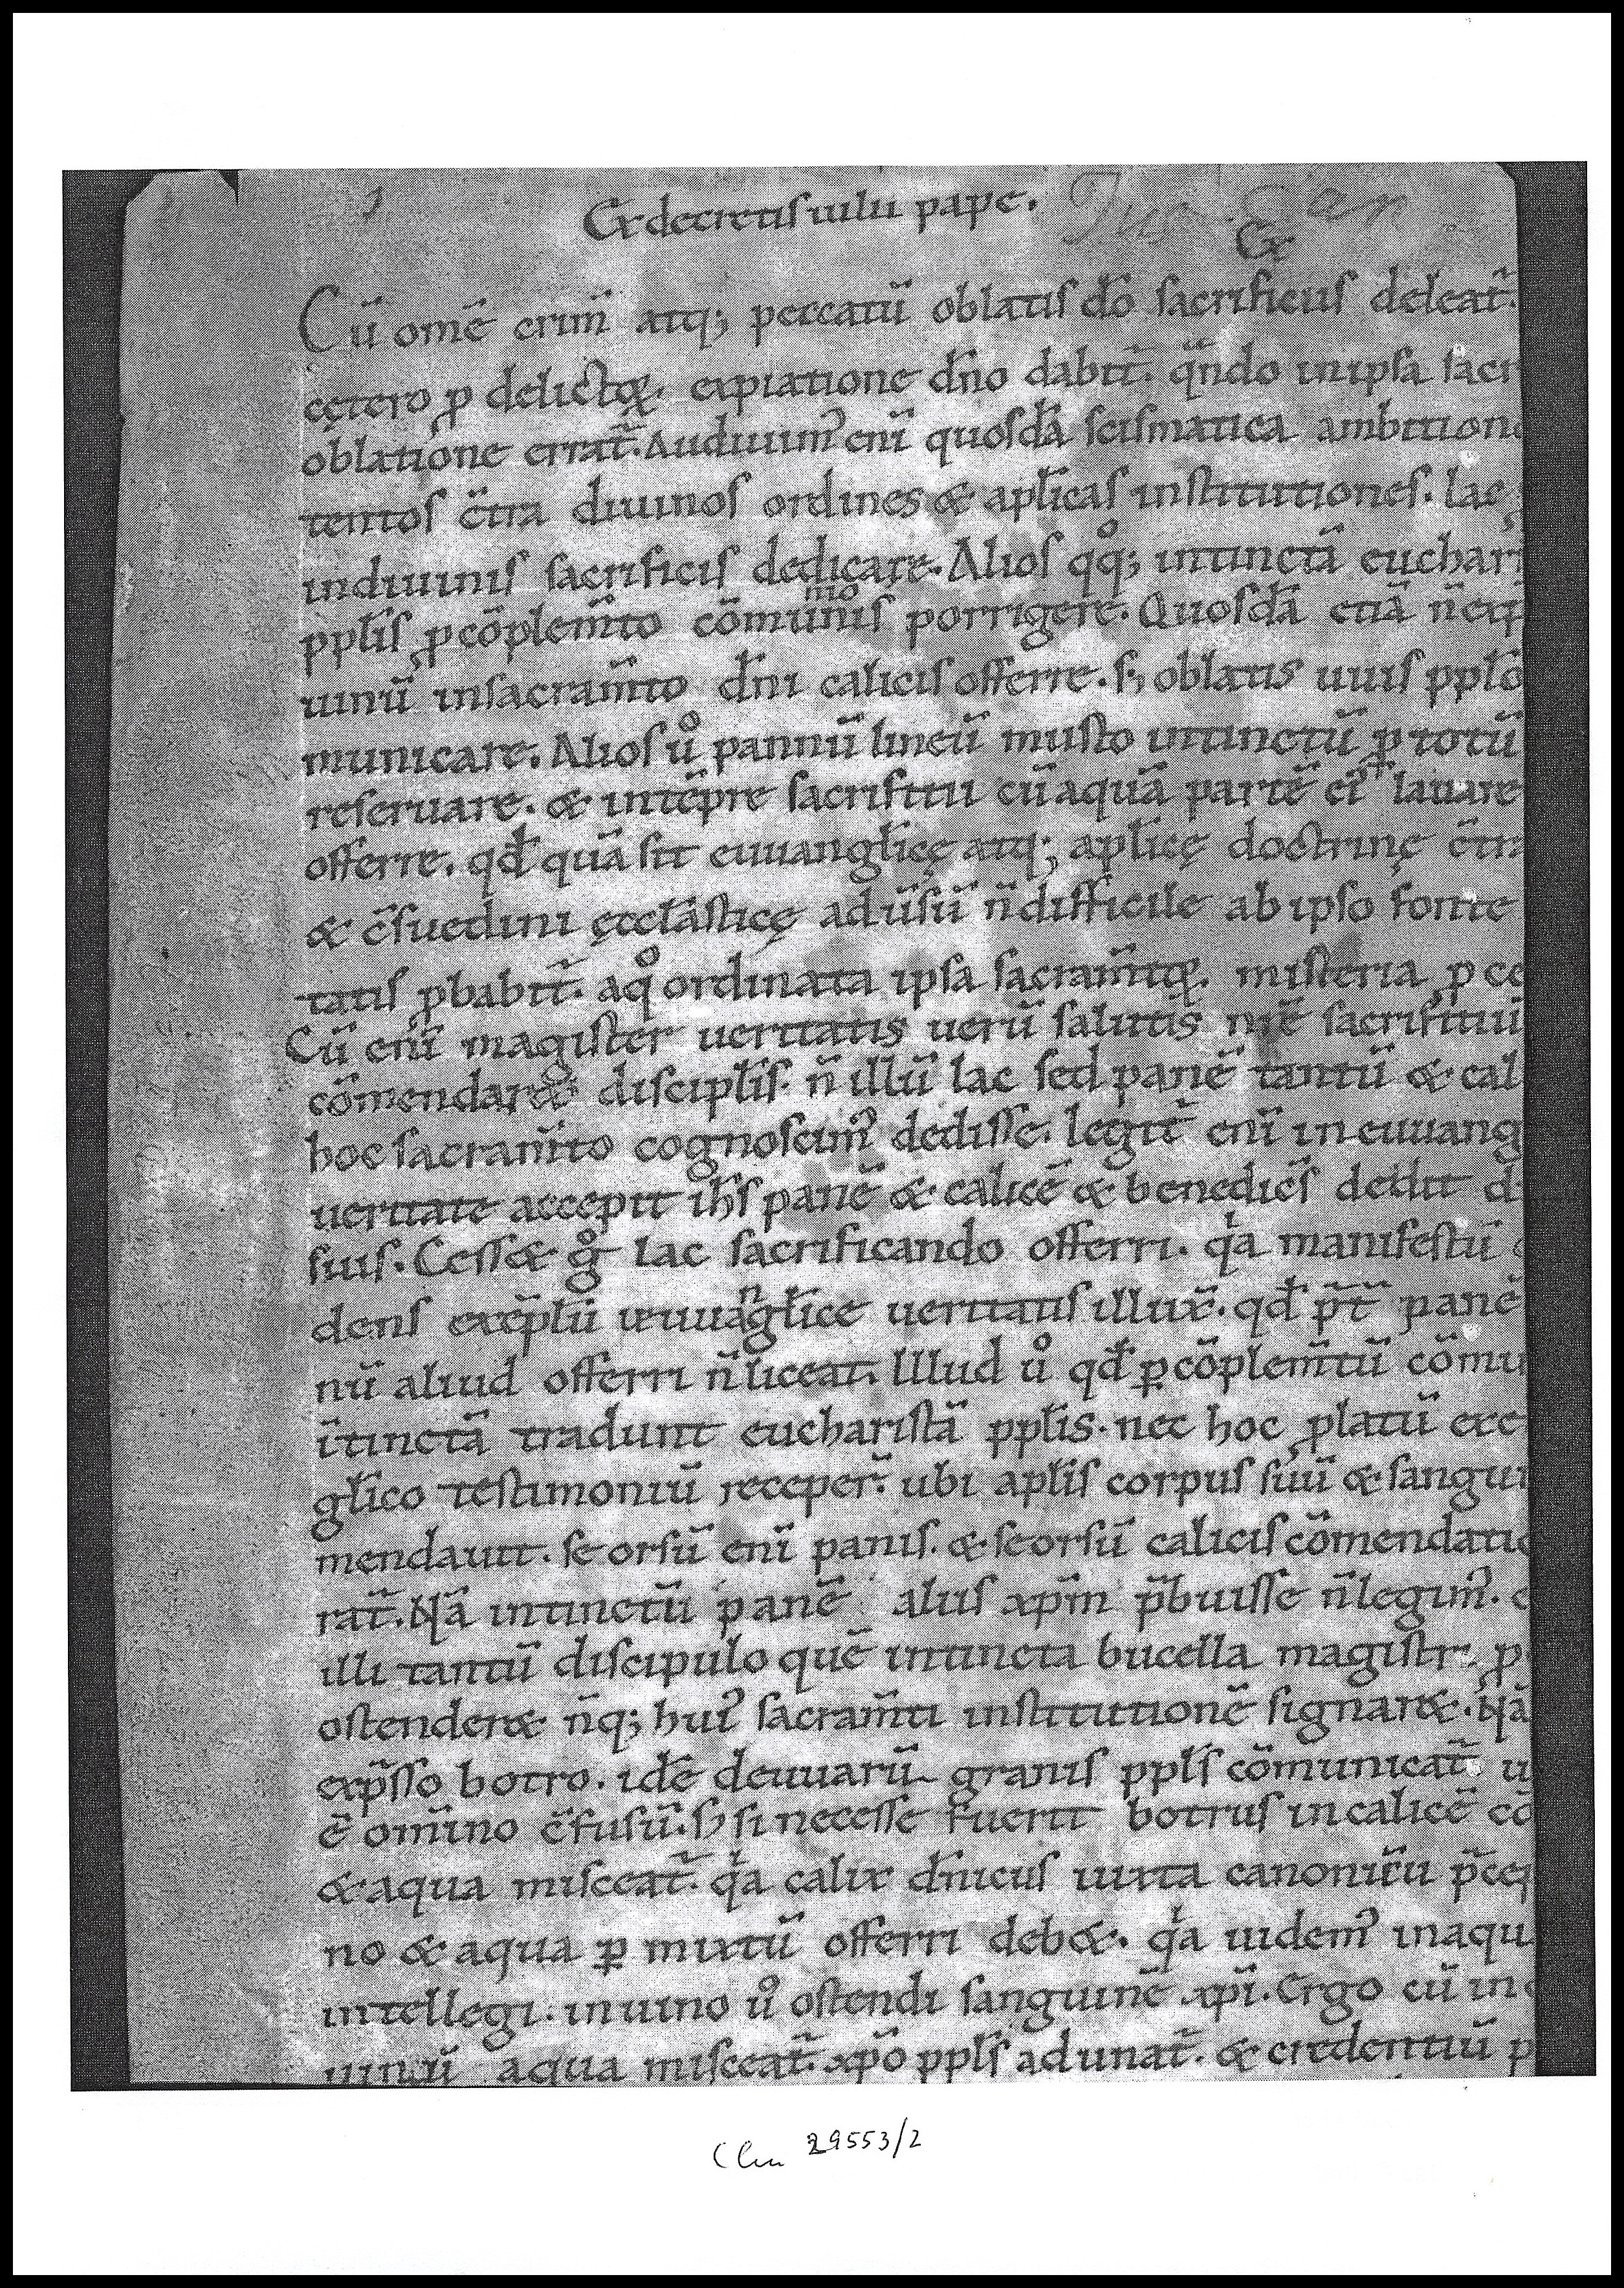 Ex decretis iulii pape.
Ex
Cū om̄e crim̄ atq; peccatū oblatis dō sacrificiis deleat̄.
cętero ꝓ delictoꝝ. expiatione dn̄o dabit̄. qn̄do in ipsa sacr
oblatione errat̄. Audiuim᾽ eni̅ quosdā scismatica ambition
tentos c̄tra diuinos ordines & aplicas̄ institutiones. lac
in diuinis sacrificiis dedicare. Alios qͦq; intinctā euchari
pplis̄ ꝓ cōplem̄to cōmunionis porrigere. Quosdā etiā n̄ exp
uinū in sacram̄to dn̄i calicis offerre. s; oblatis uuis pplō
municare. Alios uͦ pannū lineū musto intinctū ꝑ totū
reseruare. & in tēpre sacrifitii cū aquā partē ei᾽ lauare
offerre. qđ quā sit euuanglicę̄ atq; aplicę̄ doctrinę c̄tra
& c̄suedini ęccl̄asticę aduīsū n̄ difficile ab ipso fonte
tatis ꝓbabit̄. a qͦ ordinata ipsa sacram̄toꝝ. misteria ꝓce
Cū eni̅ magister ueritatis uerū salutis nr̄ē sacrifitiū
cōmendar& disciplis̄. n̄ illū lac sed panē tantū & cal
hoc sacram̄to cognoscim᾽ dedisse. legit̄ eni̅ in euuang
ueritate accepit ihs̄ panē & calicē & benedicēs dedit d
suis. Cess& gͦ lac sacrificando offerri. qͥa manifestū
dens exēplū euuanglice̅ ueritatis illux̄. qđ p̄t̄ panē
nū aliud offerri n̄ liceat. Illud uͦ qđ ꝑ cōplem̄tū cōmu
ītinctā tradunt eucharistā pplis̄. nec hoc ꝓlatū exe
glico̅ testimoniū receper̄. ubi aplis̄ corpus suū & sangui
mendauit. seorsū eni̅ panis. & seorsū calicis cōmendatio
rat̄. Nā intinctū panē aliis xpm̄ p̄buisse n̄ legim᾽. e
illi tantū discipulo quē intincta bucella magistr̄ ꝓ
ostender& n̄q; hui᾽ sacram̄ti institutionē signar&. Nā
exp̄sso botro. idē de uuarū granis ppls̄ cōmunicat̄ u
ē om̄ino c̄fusū. S; si necesse fuerit botrus in calicē cō
& aqua misceat̄. qͥa calix dn̄icus iuxta canonicū p̄cep
no & aqua ꝑmixtū offerri deb&. qͥa uidem᾽ in aqu
intellegi. in uino uͦ ostendi sanguinē xpi̅. Ergo cū in
uinū aqua misceat̄. xpō ppls̄ adunat̄. & credentiū p
Clm 29553/2